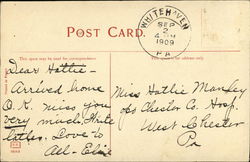 POST CARD.
WHITEHAVEN
SEP
2
4 PM
1909
PA.
This space may be used for correspondence.
Dear Hattie -
Arrived home
O.K. miss you
very much. Write
Love to
All - Elsie
Miss Hattie Manley
c/o Chester Co. Hosp.
West Chester
Pa